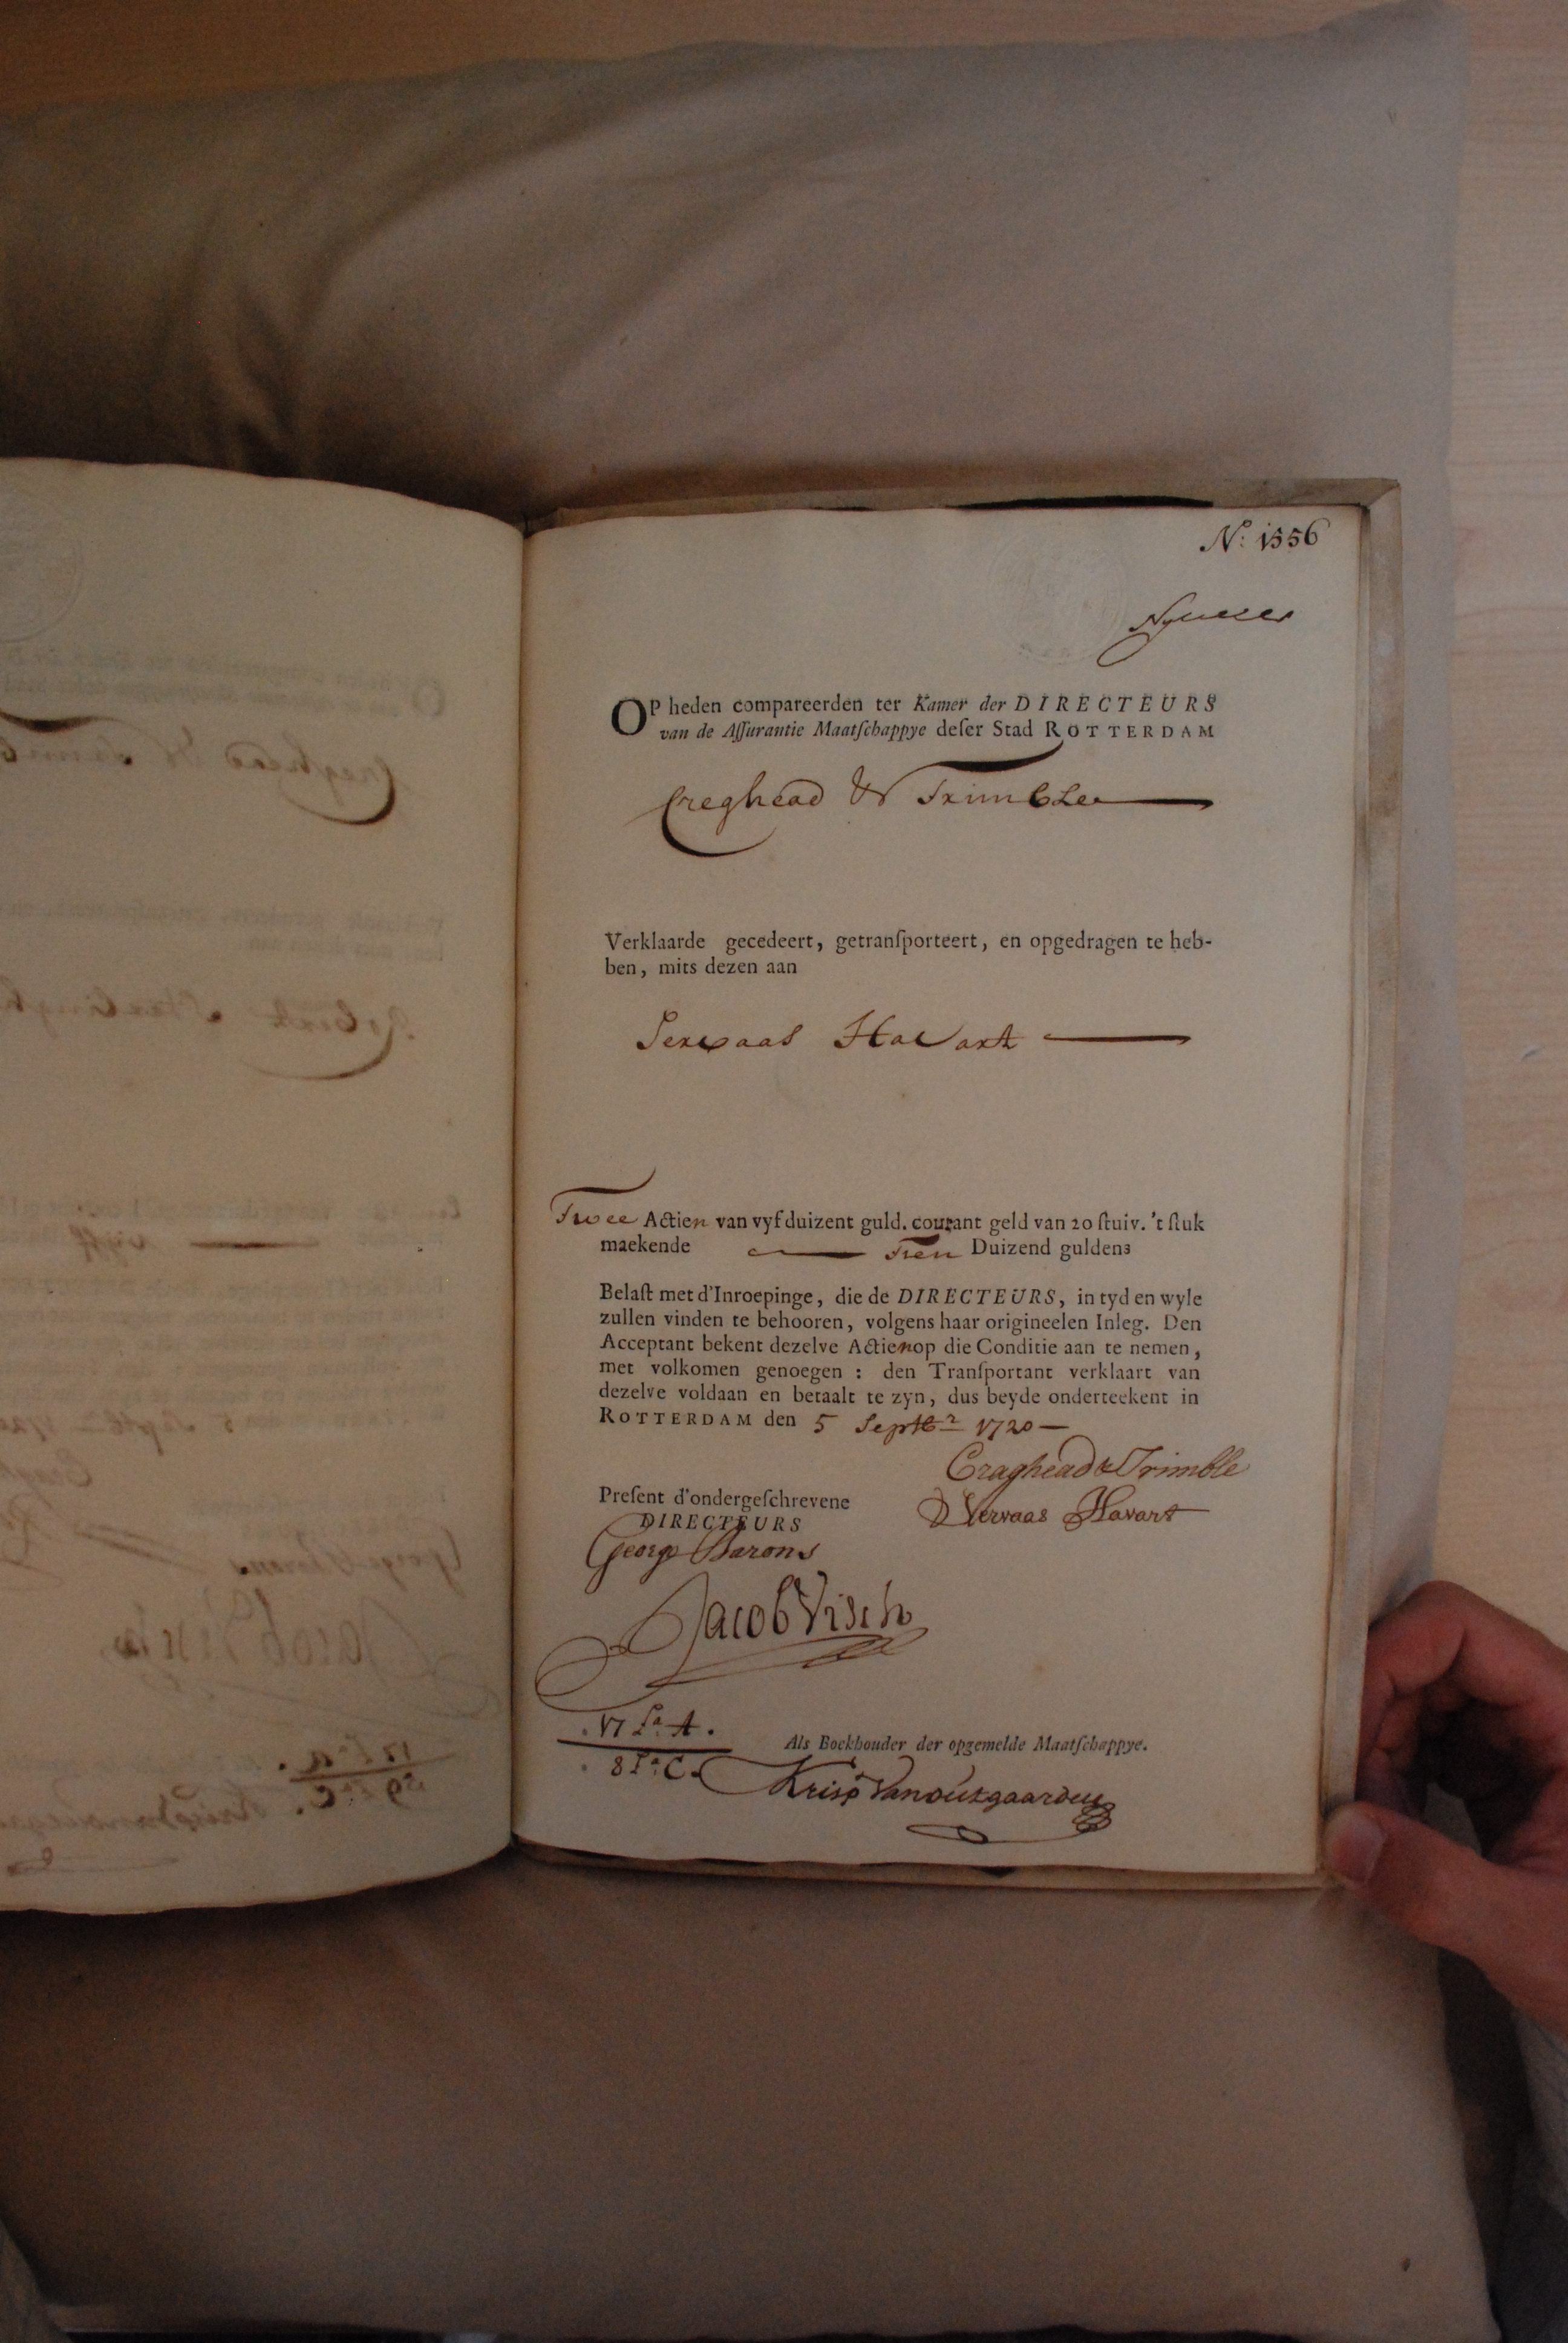 No: 1556
Op heden compareerden ter Kamer der DIRECTEURS
van de Aſſurantie Maatſchappye deſer Stad ROTTERDAM
Creghead & Trimble
Verklaarde gecedeert, getranſporteert, en opgedragen te heb-
ben, mits dezen aan
Servaas Havart
Twee Actien van vyf duizent guld. courant geld van 20 ſtuiv. 't ſtuk
maekende Tien Duizend guldens
Belaſt met d'Inroepinge, die de DIRECTEURS, in tyd en wyle
zullen vinden te behooren, volgens haar origineelen Inleg. Den
Acceptant bekent dezelve Actien op die Conditie aan te nemen,
met volkomen genoegen : den Tranſportant verklaart van
dezelve voldaan en betaalt te zyn, dus beyde onderteekent in
ROTTERDAM den 5 Septbr 1720
Craghead & Trimble
Preſent d'ondergeſchrevene
Servaas Havart
DIRECTEURS
George Barons
Jacob Visch
17 La A.
Als Boekhouder der opgemelde Maatſchappye.
8 La C.